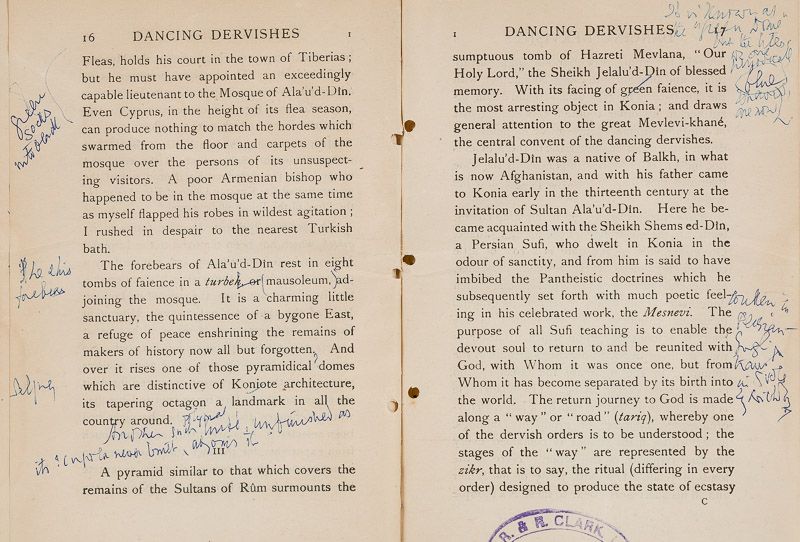 16 DANCING DERVISHES 1
Fleas, holds his court in the town of Tiberias;
but he must have appointed an exceedingly
capable lieutenant to the Mosque of Ala'u'd-Dîn.
Even Cyprus, in the height of its flea season,
can produce nothing to match the hordes which
swarmed from the floor and carpets of the
mosque over the persons of its unsuspect-
ing visitors. A poor Armenian bishop who
happened to be in the mosque at the same time
as myself flapped his robes in wildest agitation;
I rushed in despair to the nearest Turkish
bath.
The forebears of Ala'u'd-Dîn rest in eight
tombs of faience in a turbeh, or (mausoleum,) ad-
joining the mosque. It is a charming little
sanctuary, the quintessence of a bygone East,
a refuge of peace enshrining the remains of
makers of history now all but forgotten. And
over it rises one of those pyramidical domes
which are distinctive of Koniote architecture,
its tapering octagon a landmark in all the
country around.
Another such unfinished as
its cupola never built
III
A pyramid similar to that which covers the
remains of the Sultans of Rûm surmounts the
green
socks
forebears
1 DANCING DERVISHES 17
sumptuous tomb of Hazreti Mevlana, "Our
Holy Lord," the Sheikh Jelalu'd-Dîn of blessed
memory. With its facing of green faience, it is
the most arresting object in Konia; and draws
general attention to the great Mevlevi-khané,
the central convent of the dancing dervishes.
Jelalu'd-Dîn was a native of Balkh, in what
is now Afghanistan, and with his father came
to Konia early in the thirteenth century at the
invitation of Sultan Ala'u'd-Dîn. Here he be-
came acquainted with the Sheikh Shems ed-Dîn,
a Persian Sufi, who dwelt in Konia in the
odour of sanctity, and from him is said to have
imbibed the Pantheistic doctrines which he
subsequently set forth with much poetic feel-
ing in his celebrated work, the Mesnevi. The
purpose of all Sufi teaching is to enable the
devout soul to return to and be reunited with
God, with Whom it was once one, but from
Whom it has become separated by its birth into
the world. The return journey to God is made
along a "way" or "road" (tariq), whereby one
of the dervish orders is to be understood; the
stages of the "way" are represented by the
zikr, that is to say, the ritual (differing in every
order) designed to produce the state of ecstasy
C
It is known as
the green Dome
blue
R. & R. CLARK